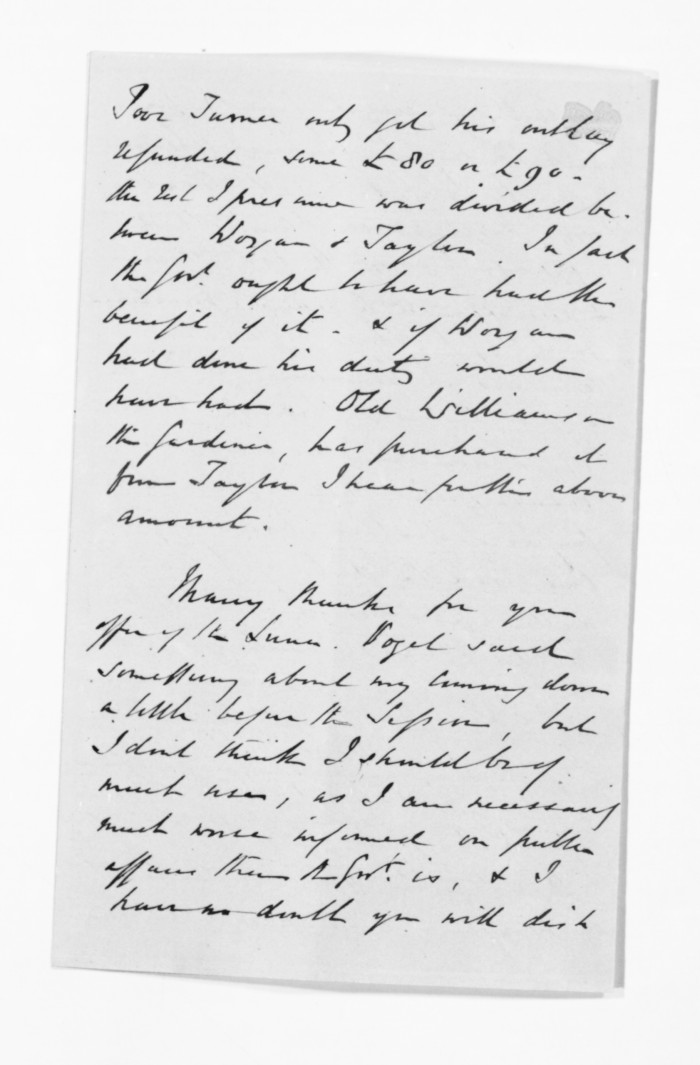 Poor Turner only got his outlay
refunded, some £80 or £90 -
the rest I presume was divided be-
tween Worgan & Taylor. In fact
the Govt. ought to have had the
benefit of it - & if Worgan
had done his duty would
have had. Old Williamson
the Gardiner, has purchased it
from Taylor I hear for the above
amount.
Many thanks for your
offer of the Luna. Vogel said
something about my coming down
a little before the Session, but
I don't think I should be of
much use, as I am necessarily
much worse informed on public
affairs than the Govt. is, & I
have no doubt you will dish